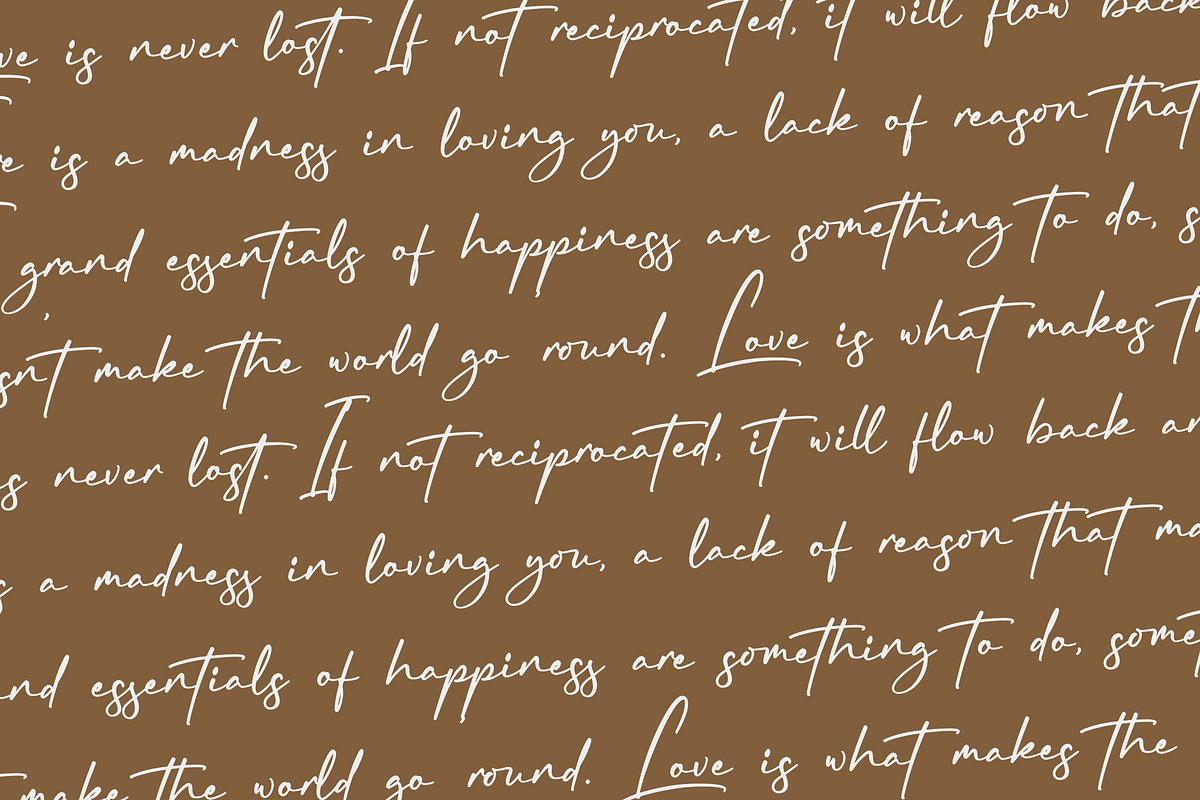 ve is never lost. If not reciprocated, it will flow back
e is a madness in loving you, a lack of reason that
grand essentials of happiness are something to do, s
sn't make the world go round. Love is what makes th
s never lost. If not reciprocated, it will flow back an
s a madness in loving you, a lack of reason that ma
nd essentials of happiness are something to do, some
make the world go round. Love is what makes the